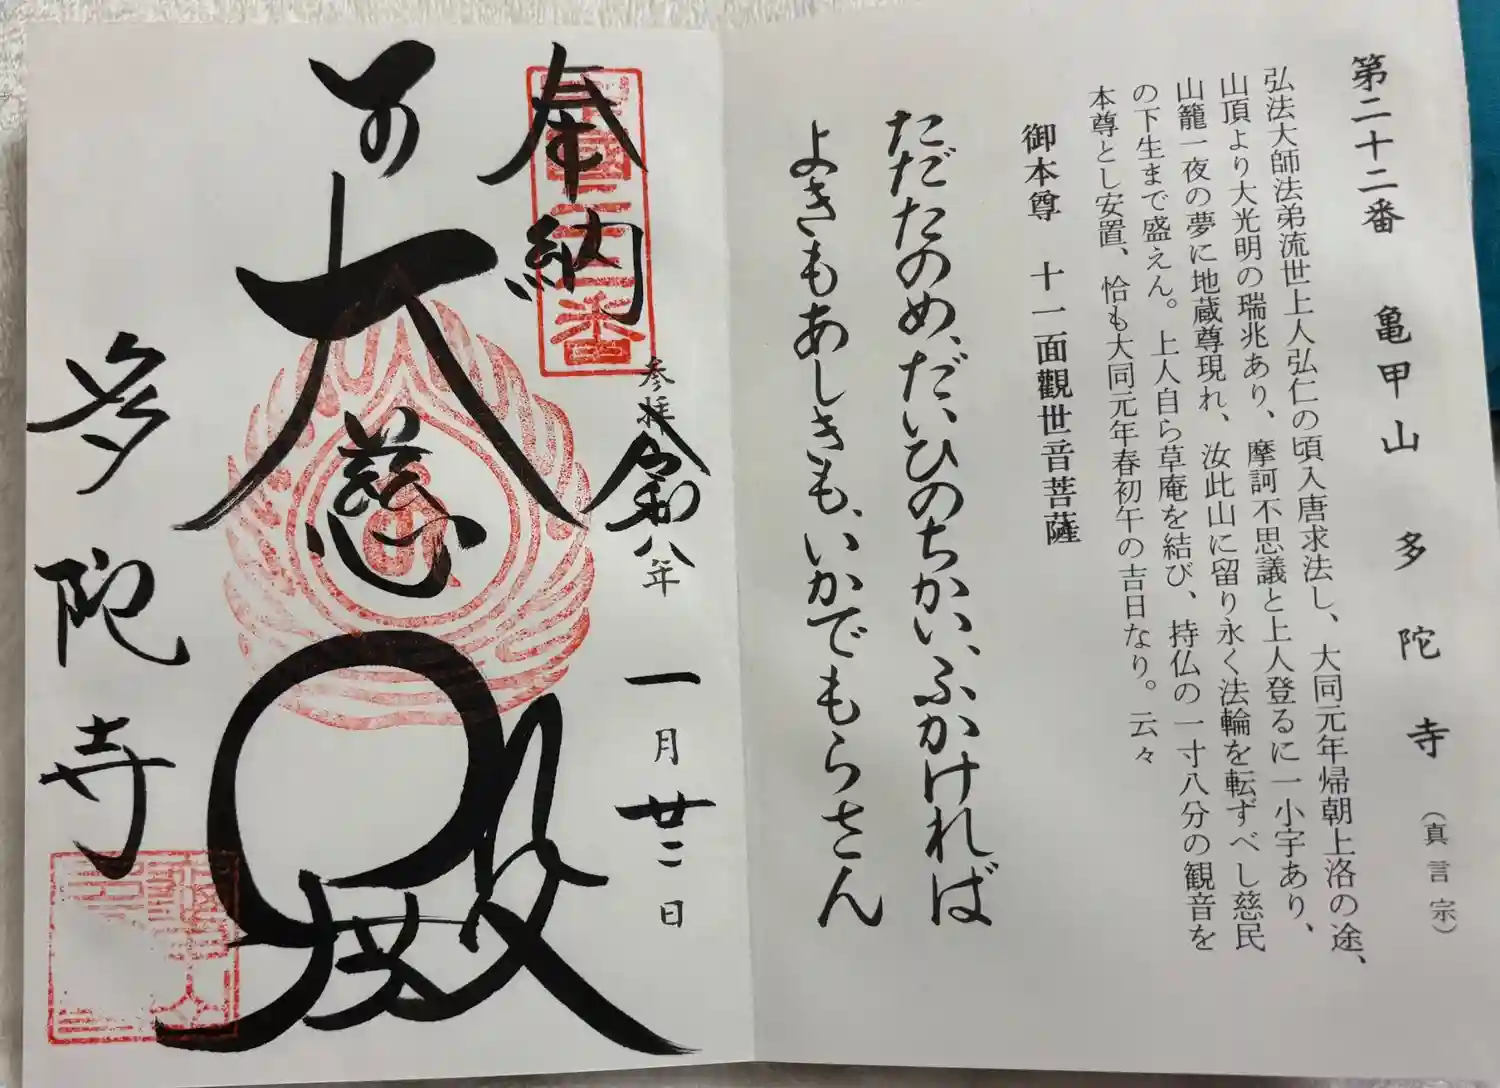 第二十二番 亀甲山 多陀寺 (真言宗)
弘法大師法弟流世上人弘仁の頃入唐求法し、大同元年帰朝上洛の途、
山頂より大光明の瑞兆あり、摩訶不思議と上人登るに一小宇あり、
山籠一夜の夢に地蔵尊現れ、汝此山に留り永く法輪を転ずべし慈民
の下生まで盛えん。上人自ら草庵を結び、持仏の一寸八分の観音を
本尊とし安置、恰も大同元年春初午の吉日なり。云々
御本尊 十一面觀世音菩薩
ただたのめ、だいひのちかい、ふかければ
よきもあしきも、いかでもらさん
奉納
参拝
令和八年 一月廿二日
大慈殿
多陀寺